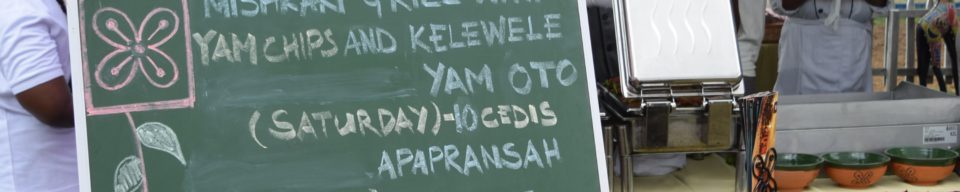 YAM CHIPS AND KELEWELE
YAM OTO
(SATURDAY)-10 CEDIS
APAPRANSAH